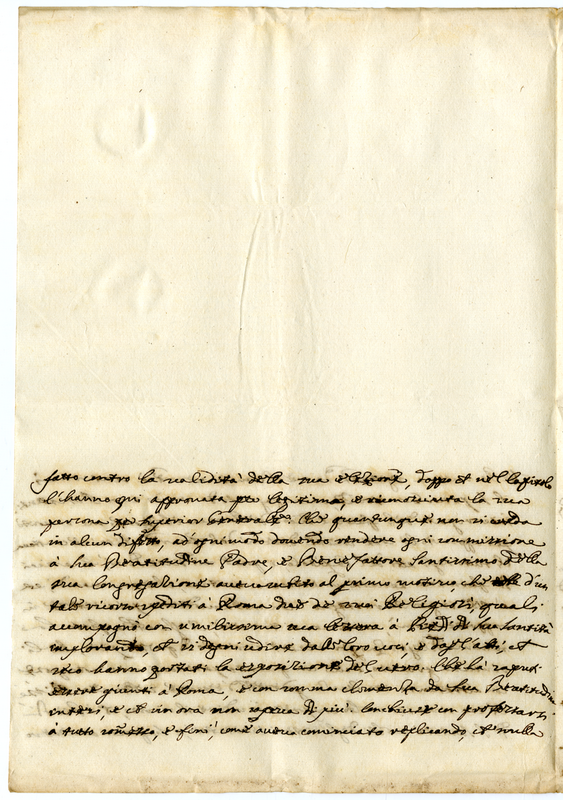 fatto contro la validità della sua elezione, doppo che nel Capitolo
l'hanno qui approvata per legitima, e riconosciuta la sua
persona per superior Generale. Che quantunque non si creda
in alcun difetto, ad ogni modo dovendo rendere ogni sommissione
à Sua Beatitudine Padre, e Benefattore Santissimo della
sua Congregatione aveva subito al primo motivo, che d'un
tale ricorso spediti à Roma due de suoi Religiosi, quali
accompagnò con umilissima sua lettera à Piedi di Sua Santità
implorando, che si degni udire dalle loro voci, e dagl'atti, che
seco hanno portati la esposizione del vero. Che là sapeva
essere giunti à Roma, e con somma clemenza da Sua Beatitudine
intesi, e che sin ora non sapeva di più. Conchiuse con protestarsi
à tutto rimesso, e finì, come aveva cominciato replicando, che nulla